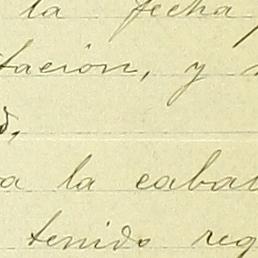 la fecha
tación, y
d,
a la cabal
tenido req